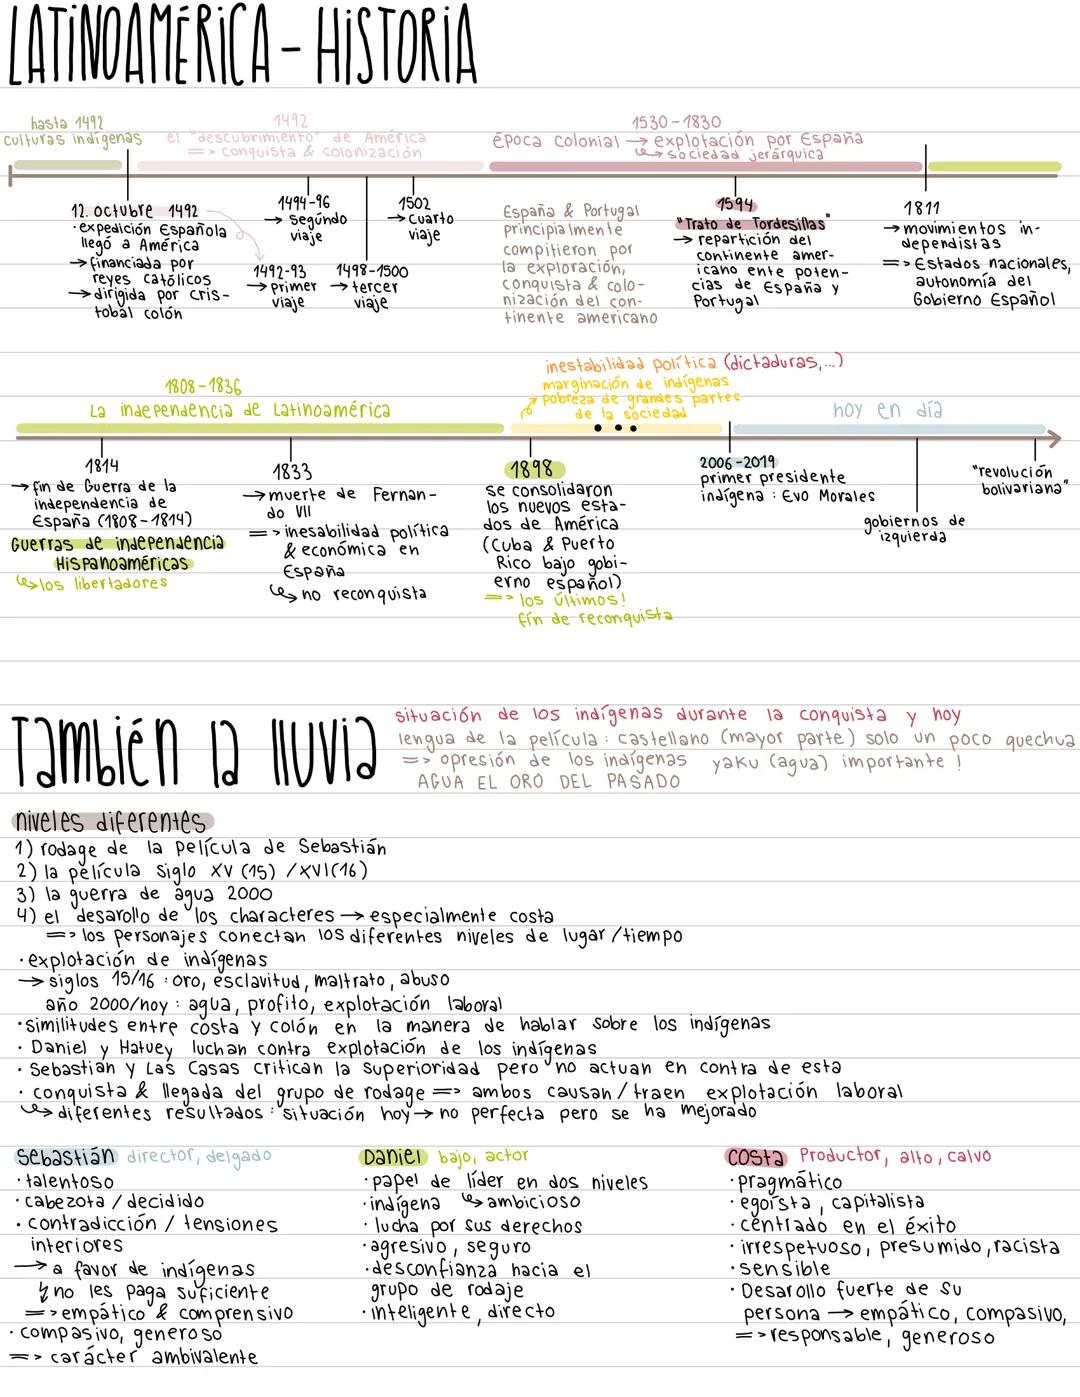 LATINOAMÉRICA - HISTORIA
hasta 1492
culturas indígenas
1492
el "descubrimiento" de América
=> conquista & colonización
1530-1830
época colonial → explotación por España
↳ sociedad jerárquica
12. octubre 1492
· expedición Española
llegó a América
→ financiada por
reyes católicos
→ dirigida por cris-
tobal colón
1494-96
→ segúndo
viaje
1492-93
→ primer
viaje
1498-1500
→ tercer
viaje
1502
→ cuarto
viaje
España & Portugal
principialmente
compitieron por
la exploración,
conquista & colo-
nización del con-
tinente americano
1594
"Trato de Tordesillas"
→ repartición del
continente amer-
icano ente poten-
cias de España y
Portugal
1811
→ movimientos in-
dependistas
=> Estados nacionales,
autonomía del
Gobierno Español
1808-1836
La independencia de Latinoamérica
inestabilidad política (dictaduras,...)
marginación de indígenas
↱ pobreza de grandes partes
de la sociedad
hoy en día
1814
→ fin de Guerra de la
independencia de
España (1808-1814)
Guerras de independencia
Hispanoaméricas
↳ los libertadores
1833
→ muerte de Fernan-
do VII
=> inesabilidad política
& económica en
España
↳ no reconquista
1898
se consolidaron
los nuevos esta-
dos de América
(Cuba & Puerto
Rico bajo gobi-
erno español)
=> los últimos!
fín de reconquista
2006-2019
primer presidente
indígena : Evo Morales
gobiernos de
izquierda
"revolución
bolivariana"
También la lluvia
situación de los indígenas durante la conquista y hoy
lengua de la película : castellano (mayor parte) solo un poco quechua
=> opresión de los indígenas yaku (agua) importante !
AGUA EL ORO DEL PASADO
niveles diferentes
1) rodage de la película de Sebastián
2) la película siglo XV (15) / XVI(16)
3) la guerra de agua 2000
4) el desarollo de los characteres → especialmente costa
=> los personajes conectan los diferentes niveles de lugar / tiempo
· explotación de indígenas
→ siglos 15/16 : oro, esclavitud, maltrato, abuso
año 2000/hoy : agua, profito, explotación laboral
· similitudes entre costa y colón en la manera de hablar sobre los indígenas
· Daniel y Hatuey luchan contra explotación de los indígenas
· Sebastian y Las Casas critican la superioridad pero no actuan en contra de esta
· conquista & llegada del grupo de rodage => ambos causan / traen explotación laboral
↳ diferentes resultados : situación hoy → no perfecta pero se ha mejorado
Sebastián director, delgado
· talentoso
· cabezota / decidido
· contradicción / tensiones
interiores
→ a favor de indígenas
↯ no les paga suficiente
=> empático & comprensivo
· compasivo, generoso
=> carácter ambivalente
Daniel bajo, actor
· papel de líder en dos niveles
· indígena ↳ ambicioso
· lucha por sus derechos
· agresivo, seguro
· desconfianza hacia el
grupo de rodaje
· inteligente, directo
Costa Productor, alto, calvo
· pragmático
· egoísta, capitalista
· centrado en el éxito
· irrespetuoso, presumido, racista
· sensible
· Desarollo fuerte de su
persona → empático, compasivo,
=> responsable, generoso